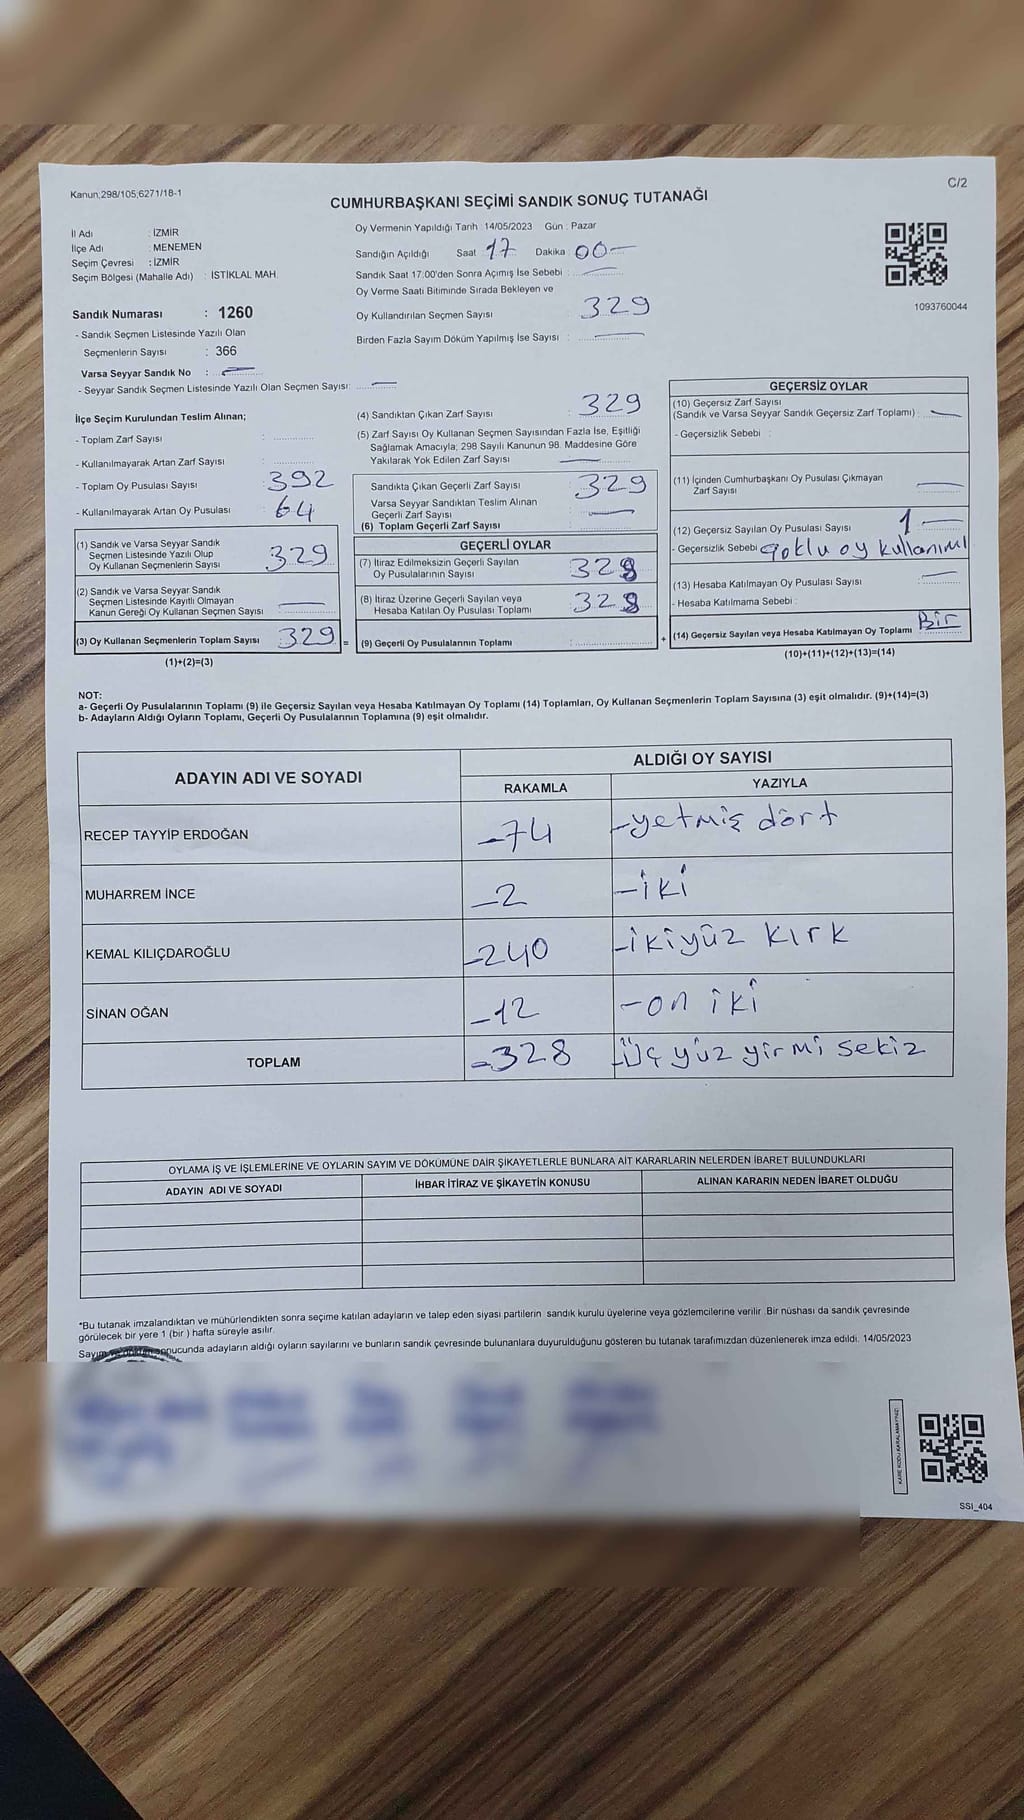 Kanun;298/105;6271/18-1
C/2
CUMHURBAŞKANI SEÇİMİ SANDIK SONUÇ TUTANAĞI
İl Adı : İZMİR
İlçe Adı : MENEMEN
Seçim Çevresi : İZMİR
Seçim Bölgesi (Mahalle Adı) : İSTİKLAL MAH.
Sandık Numarası : 1260
- Sandık Seçmen Listesinde Yazılı Olan
Seçmenlerin Sayısı : 366
Varsa Seyyar Sandık No : —
- Seyyar Sandık Seçmen Listesinde Yazılı Olan Seçmen Sayısı: —
Oy Vermenin Yapıldığı Tarih : 14/05/2023 Gün : Pazar
Sandığın Açıldığı Saat 17 Dakika 00 —
Sandık Saat 17.00'den Sonra Açılmış İse Sebebi : —
Oy Verme Saati Bitiminde Sırada Bekleyen ve
Oy Kullandırılan Seçmen Sayısı : 329
Birden Fazla Sayım Döküm Yapılmış İse Sayısı : —
1093760044
İlçe Seçim Kurulundan Teslim Alınan;
- Toplam Zarf Sayısı :
- Kullanılmayarak Artan Zarf Sayısı :
- Toplam Oy Pusulası Sayısı : 392
- Kullanılmayarak Artan Oy Pusulası : 64
(1) Sandık ve Varsa Seyyar Sandık
Seçmen Listesinde Yazılı Olup
Oy Kullanan Seçmenlerin Sayısı : 329
(2) Sandık ve Varsa Seyyar Sandık
Seçmen Listesinde Kayıtlı Olmayan
Kanun Gereği Oy Kullanan Seçmen Sayısı : —
(3) Oy Kullanan Seçmenlerin Toplam Sayısı : 329 =
(1)+(2)=(3)
(4) Sandıktan Çıkan Zarf Sayısı : 329
(5) Zarf Sayısı Oy Kullanan Seçmen Sayısından Fazla İse, Eşitliği
Sağlamak Amacıyla; 298 Sayılı Kanunun 98. Maddesine Göre
Yakılarak Yok Edilen Zarf Sayısı : —
Sandıkta Çıkan Geçerli Zarf Sayısı : 329
Varsa Seyyar Sandıktan Teslim Alınan
Geçerli Zarf Sayısı : —
(6) Toplam Geçerli Zarf Sayısı :
GEÇERLİ OYLAR
(7) İtiraz Edilmeksizin Geçerli Sayılan
Oy Pusulalarının Sayısı : 328
(8) İtiraz Üzerine Geçerli Sayılan veya
Hesaba Katılan Oy Pusulası Toplamı : 328
(9) Geçerli Oy Pusulalarının Toplamı : +
GEÇERSİZ OYLAR
(10) Geçersiz Zarf Sayısı
(Sandık ve Varsa Seyyar Sandık Geçersiz Zarf Toplamı) : —
- Geçersizlik Sebebi :
(11) İçinden Cumhurbaşkanı Oy Pusulası Çıkmayan
Zarf Sayısı : —
(12) Geçersiz Sayılan Oy Pusulası Sayısı : 1 —
- Geçersizlik Sebebi : çoklu oy kullanımı
(13) Hesaba Katılmayan Oy Pusulası Sayısı : —
- Hesaba Katılmama Sebebi :
(14) Geçersiz Sayılan veya Hesaba Katılmayan Oy Toplamı : Bir
(10)+(11)+(12)+(13)=(14)
NOT:
a- Geçerli Oy Pusulalarının Toplamı (9) ile Geçersiz Sayılan veya Hesaba Katılmayan Oy Toplamı (14) Toplamları, Oy Kullanan Seçmenlerin Toplam Sayısına (3) eşit olmalıdır. (9)+(14)=(3)
b- Adayların Aldığı Oyların Toplamı, Geçerli Oy Pusulalarının Toplamına (9) eşit olmalıdır.
ADAYIN ADI VE SOYADI ALDIĞI OY SAYISI
RAKAMLA YAZIYLA
RECEP TAYYİP ERDOĞAN -74 -yetmiş dört
MUHARREM İNCE -2 -iki
KEMAL KILIÇDAROĞLU -240 -ikiyüz kırk
SİNAN OĞAN -12 -on iki
TOPLAM -328 -Üç yüz yirmi sekiz
OYLAMA İŞ VE İŞLEMLERİNE VE OYLARIN SAYIM VE DÖKÜMÜNE DAİR ŞİKAYETLERLE BUNLARA AİT KARARLARIN NELERDEN İBARET BULUNDUKLARI
ADAYIN ADI VE SOYADI İHBAR İTİRAZ VE ŞİKAYETİN KONUSU ALINAN KARARIN NEDEN İBARET OLDUĞU
*Bu tutanak imzalandıktan ve mühürlendikten sonra seçime katılan adayların ve talep eden siyasi partilerin sandık kurulu üyelerine veya gözlemcilerine verilir. Bir nüshası da sandık çevresinde
görülecek bir yere 1 (bir ) hafta süreyle asılır.
Sayım sonucunda adayların aldığı oyların sayılarını ve bunların sandık çevresinde bulunanlara duyurulduğunu gösteren bu tutanak tarafımızdan düzenlenerek imza edildi. 14/05/2023
KARE KODU KARALAMAYINIZ!
SSI_404